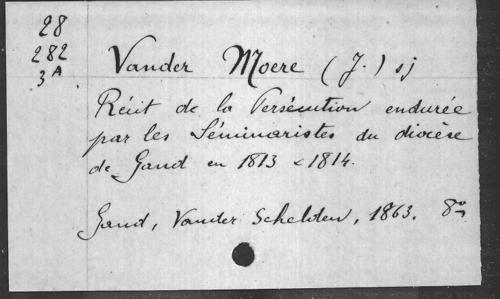 28
282
3A
Vander Moere (J.) sj
Récit de la Persécution endurée
par les Séminaristes du diocèse
de Gand en 1813 & 1814.
Gand, Vander Schelden, 1863. 8°